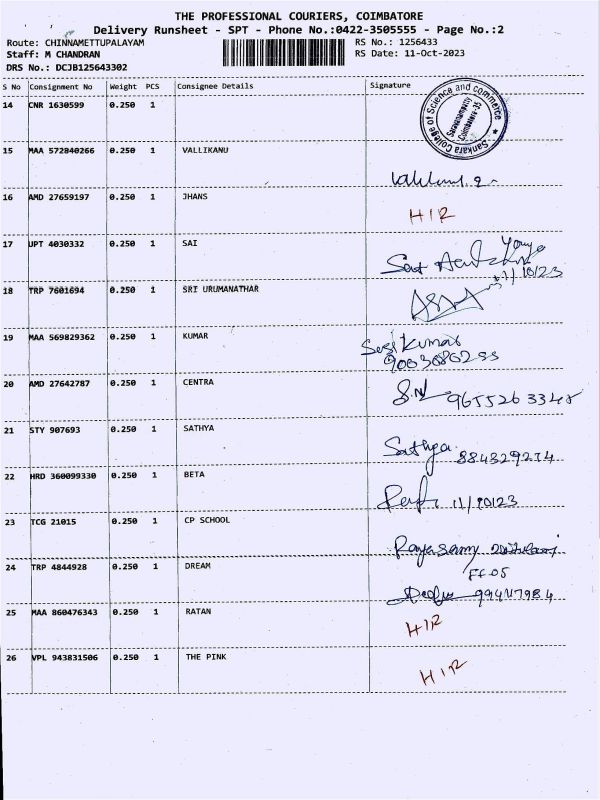 THE PROFESSIONAL COURIERS, COIMBATORE
Delivery Runsheet - SPT - Phone No.:0422-3505555 - Page No.:2
Route: CHINNAMETTUPALAYAM RS No.: 1256433
Staff: M CHANDRAN RS Date: 11-Oct-2023
DRS No.: DCJB125643302
S No Consignment No Weight PCS Consignee Details Signature
14 CNR 1630599 0.250 1
Sankara College of Science and commerce
Saravanampatty
Coimbatore-35
15 MAA 572840266 0.250 1 VALLIKANU
16 AMD 27659197 0.250 1 JHANS
HIR
17 UPT 4030332 0.250 1 SAI
11/10/23
18 TRP 7601694 0.250 1 SRI URUMANATHAR
19 MAA 569829362 0.250 1 KUMAR
Sasi Kumar
9003080255
20 AMD 27642787 0.250 1 CENTRA
21 STY 907693 0.250 1 SATHYA
Sathya
22 HRD 360099330 0.250 1 BETA
11/10/23
23 TCG 21015 0.250 1 CP SCHOOL
24 TRP 4844928 0.250 1 DREAM
25 MAA 860476343 0.250 1 RATAN
HIR
26 VPL 943831506 0.250 1 THE PINK
HIR